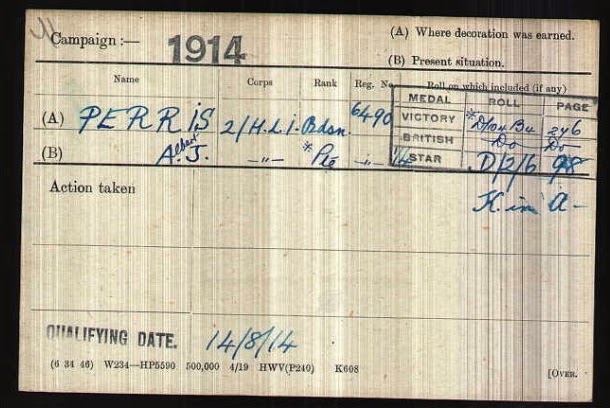 Campaign :— 1914
(A) Where decoration was earned.
(B) Present situation.
Name Corps Rank Reg. No. Roll on which included (if any)
MEDAL ROLL PAGE
(A) PERRIS 2/H.L.I. Bdsn. 6490
VICTORY 246
BRITISH Do Do
(B) Albert J. —"— *Pte —"—
STAR D/2/6 98
K in A -
Action taken
QUALIFYING DATE. 14/8/14
(6 34 46) W234—HP5590 500,000 4/19 HWV(P240) K608
[OVER.